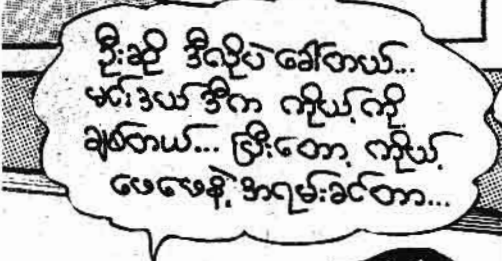 ဦးဆို ဒီလိုပဲ ခေါ်တယ်...
မင်းဒယ်ဒီက ကိုယ့်ကို
ချစ်တယ်... ပြီးတော့ ကိုယ့်
ဖေဖေနဲ့ အရမ်းခင်တာ...